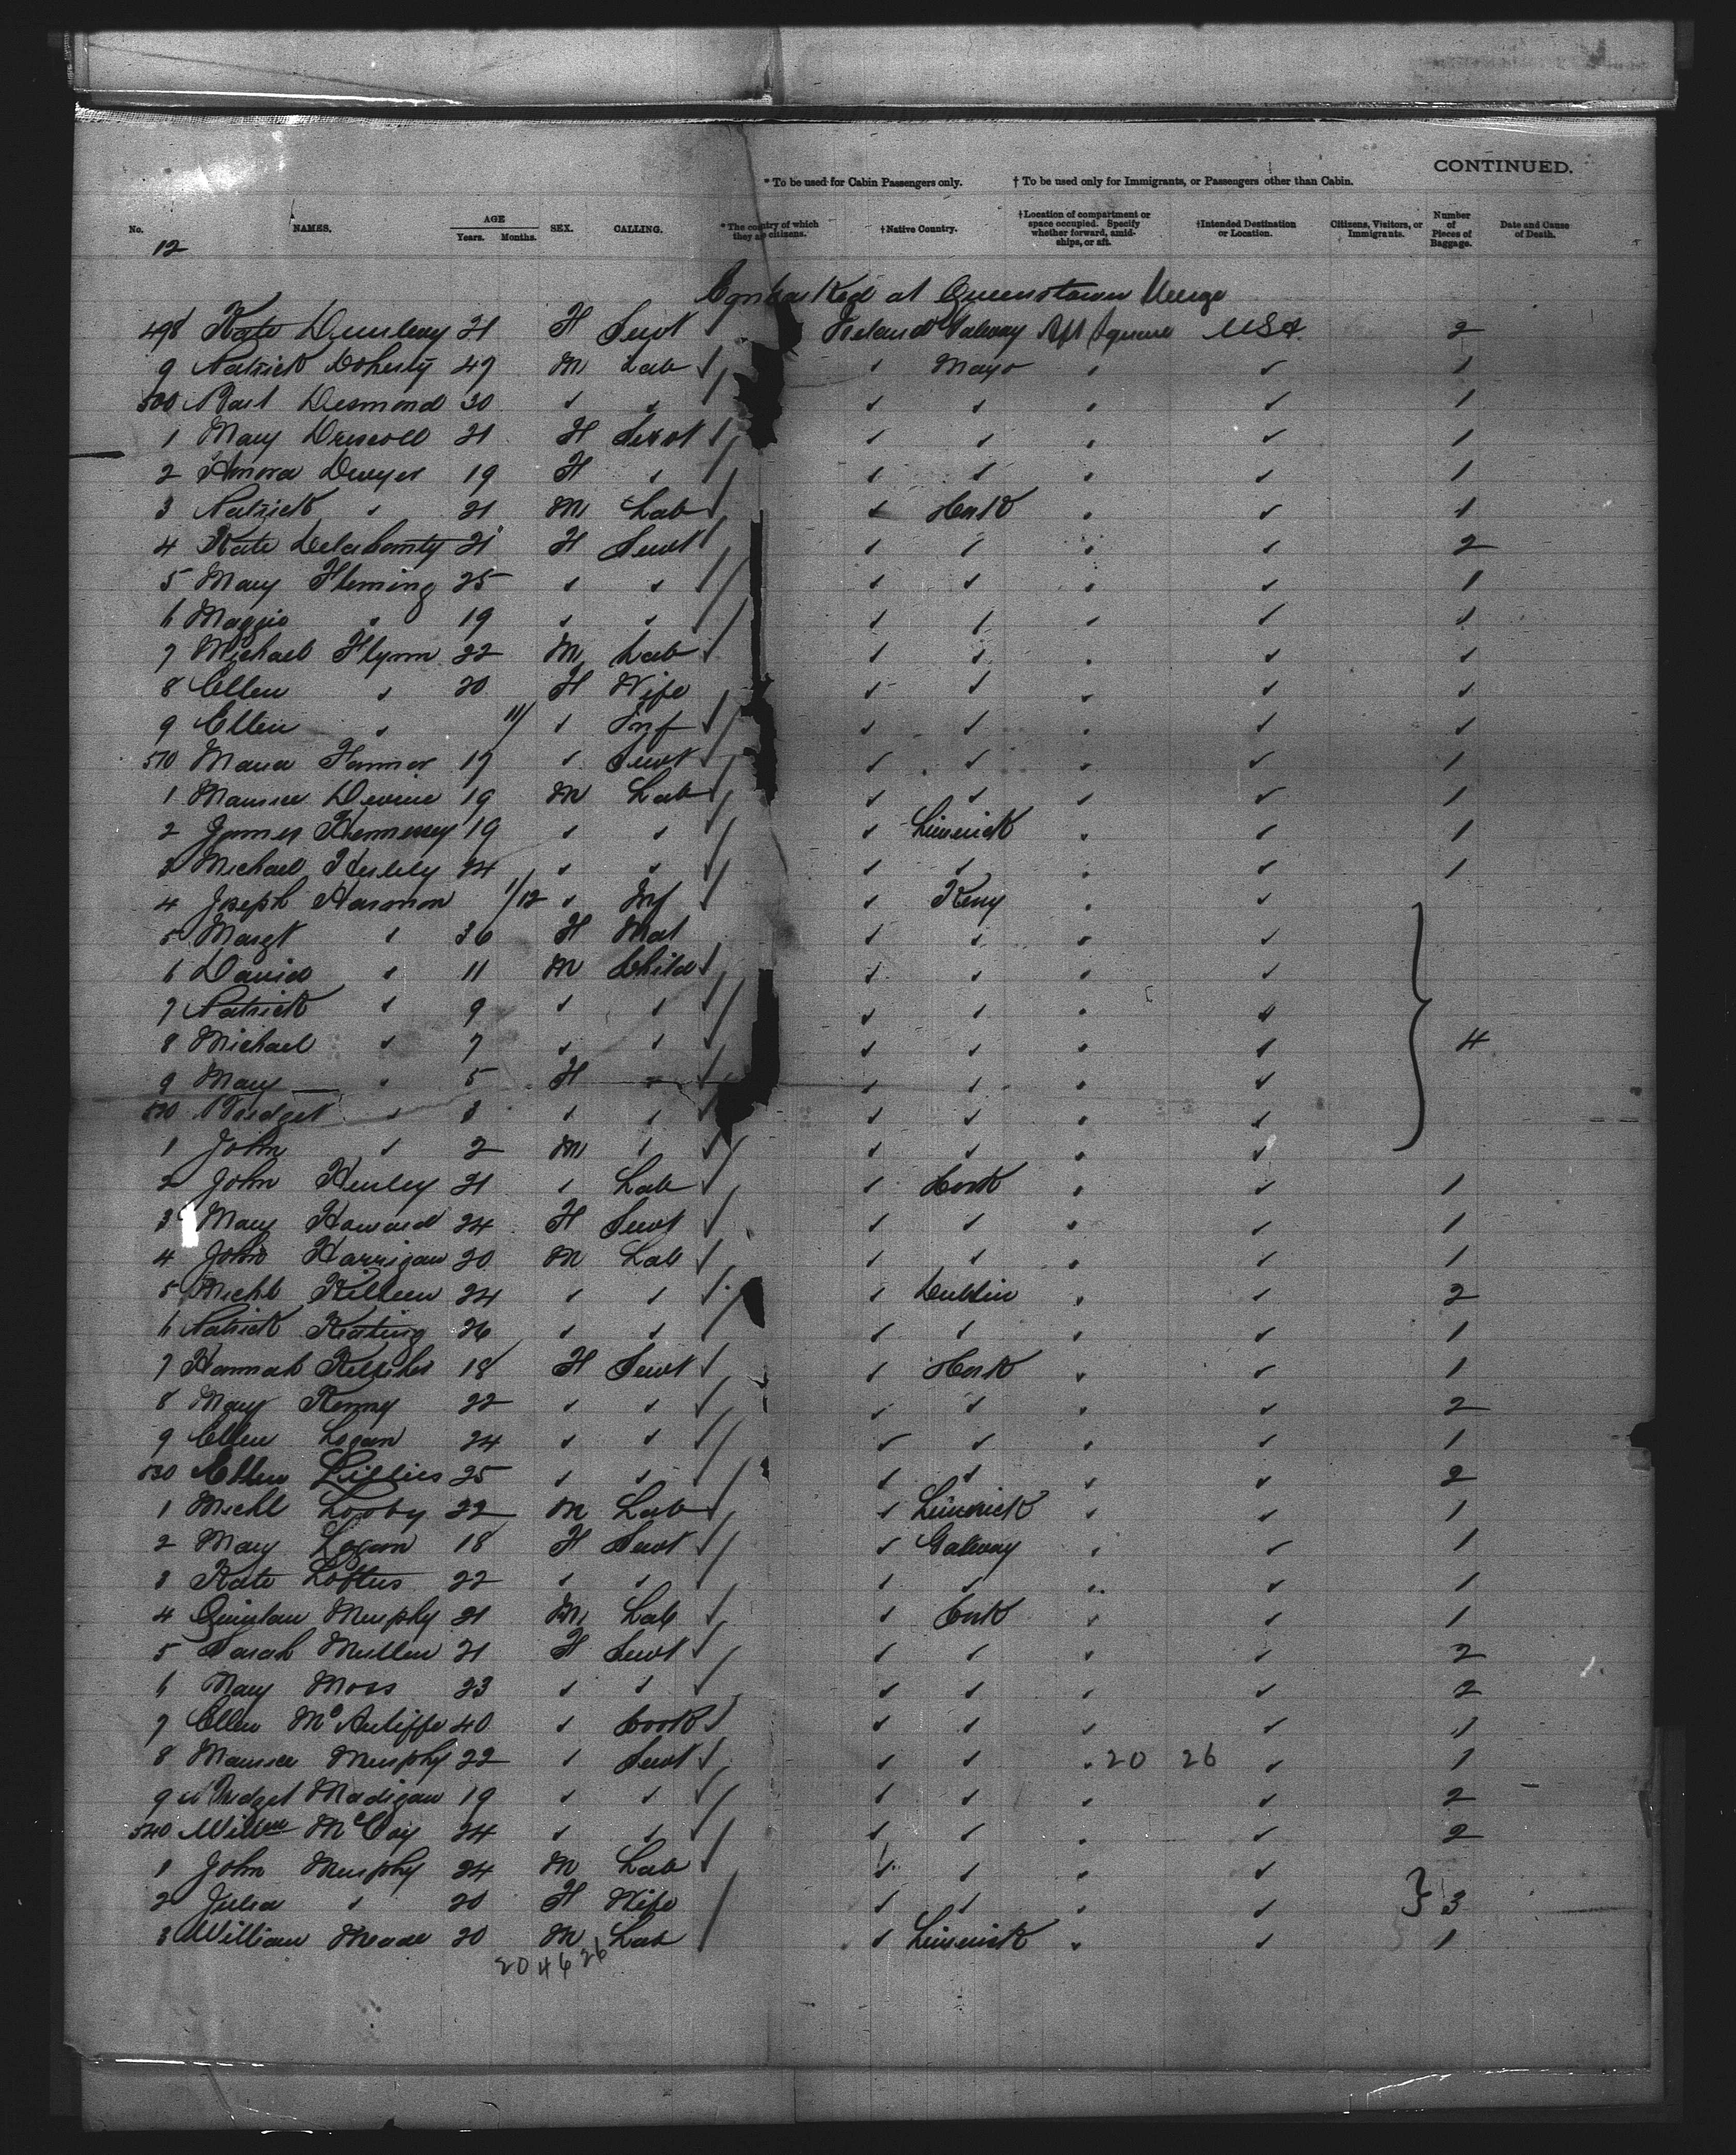 CONTINUED.
* To be used for Cabin Passengers only. † To be used only for Immigrants, or Passengers other than Cabin.
No. NAMES. AGE Years. Months. SEX. CALLING. * The country of which they are citizens. † Native Country. † Location of compartment or space occupied. Specify whether forward, amidships, or aft. † Intended Destination or Location. Citizens, Visitors, or Immigrants. Number of Pieces of Baggage. Date and Cause of Death.
12
Embarked at Queenstown
498 Kate 21 F Servt Ireland Galway Aft Square USA. 2
9 Patrick Doherty 47 M Lab ✓ ✓ Mayo ✓ ✓ 1
500 Bart Desmond 30 ✓ ✓ ✓ ✓ ✓ ✓ 1
1 Mary Driscoll 21 F Servt ✓ ✓ ✓ ✓ 1
2 Honora Dwyer 19 F ✓ ✓ ✓ ✓ ✓ 1
3 Patrick ✓ 21 M Lab ✓ Cork ✓ ✓ 1
4 Kate Delahounty 21 F Servt ✓ ✓ ✓ ✓ 2
5 Mary Fleming 25 ✓ ✓ ✓ ✓ ✓ ✓ 1
6 Maggie ✓ 19 ✓ ✓ ✓ ✓ ✓ ✓ 1
7 Michael Flynn 22 M Lab ✓ ✓ ✓ ✓ 1
8 Ellen ✓ 20 F Wife ✓ ✓ ✓ ✓ ✓
9 Ellen ✓ 11/ ✓ Inf ✓ ✓ ✓ ✓ ✓
510 Maria 17 ✓ Servt ✓ ✓ ✓ ✓ 1
1 Maurice Devine 19 M Lab ✓ ✓ ✓ ✓ 1
2 James Hennessy 19 ✓ ✓ ✓ Limerick ✓ ✓ 1
3 Michael Herlihy 24 ✓ ✓ ✓ ✓ ✓ ✓ 1
4 Joseph Harmon 1/12 ✓ Inf ✓ Kerry ✓ ✓
5 Margt ✓ 36 F Mat ✓ ✓ ✓ ✓
6 David ✓ 11 M Child ✓ ✓ ✓ ✓
7 Patrick ✓ 9 ✓ ✓ ✓ ✓ ✓ ✓
8 Michael ✓ 7 ✓ ✓ ✓ ✓ ✓ ✓ 4
9 Mary ✓ 5 F ✓ ✓ ✓ ✓ ✓
520 Bridget ✓ 3 ✓ ✓ ✓ ✓ ✓ ✓
1 John ✓ 2 M ✓ ✓ ✓ ✓ ✓
2 John Hurley 21 ✓ Lab ✓ Cork ✓ ✓ 1
3 Mary Howard 24 F Servt ✓ ✓ ✓ ✓ 1
4 John Harrigan 20 M Lab ✓ ✓ ✓ ✓ 1
5 Michl Killeen 24 ✓ ✓ ✓ Dublin ✓ ✓ 2
6 Patrick Keating 26 ✓ ✓ ✓ ✓ ✓ ✓ 1
7 Hannah Kelleher 18 F Servt ✓ Cork ✓ ✓ 1
8 Mary Kenny 22 ✓ ✓ ✓ ✓ ✓ ✓ 2
9 Ellen Logan 24 ✓ ✓ ✓ ✓ ✓ ✓ 1
530 Ellen Lillies 25 ✓ ✓ ✓ ✓ ✓ ✓ 2
1 Michl Looby 22 M Lab ✓ Limerick ✓ ✓ 1
2 Mary Logan 18 F Servt ✓ Galway ✓ ✓ 1
3 Kate Loftus 22 ✓ ✓ ✓ ✓ ✓ ✓ 1
4 Quinlan Murphy 21 M Lab ✓ Cork ✓ ✓ 1
5 Sarah Mullen 21 F Servt ✓ ✓ ✓ ✓ 2
6 Mary Moss 23 ✓ ✓ ✓ ✓ ✓ ✓ 2
7 Ellen McAuliffe 40 ✓ Cook ✓ ✓ ✓ ✓ 1
8 Murphy 22 ✓ Servt ✓ ✓ ✓ 20 26 ✓ 1
9 Bridget Madigan 19 ✓ ✓ ✓ ✓ ✓ ✓ 2
540 McCoy 24 ✓ ✓ ✓ ✓ ✓ ✓ 2
1 John Murphy 24 M Lab ✓ ✓ ✓ ✓
2 Julia ✓ 20 F Wife ✓ ✓ ✓ ✓ 3
3 William Meade 20 M Lab ✓ Limerick ✓ ✓ 1
20 46 26